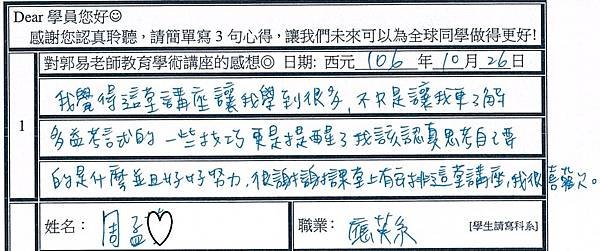 Dear 學員您好☺
感謝您認真聆聽，請簡單寫3句心得，讓我們未來可以為全球同學做得更好!
對郭易老師教育學術講座的感想◎ 日期: 西元 106 年 10 月 26 日
1
我覺得這堂講座讓我學到很多，不只是讓我更了解
多益考試的一些技巧更是提醒了我該認真思考自己要
的是什麼並且好好努力，很謝謝課堂上有安排這堂講座，我很喜歡。
姓名： 周孟♡ 職業： 應英系 [學生請寫科系]